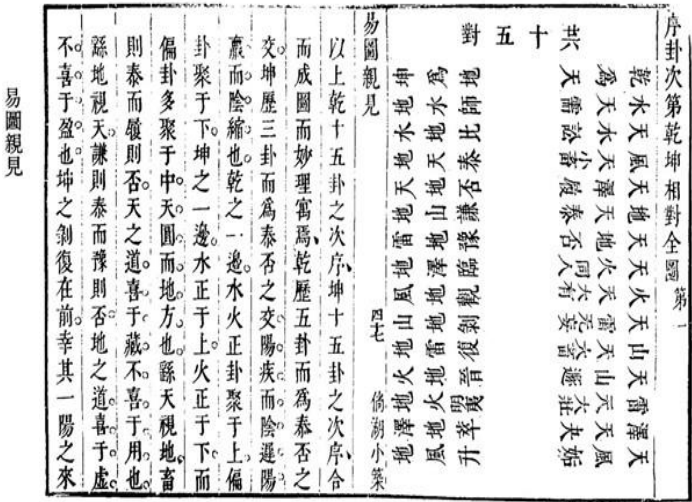 序卦次第乾坤相對全圖第一
乾水天風天地天天火天山天雷澤天
為天水天澤天地火天雷天山天天風
天需訟小畜履泰否同人大有无妄大畜遯大壯夬姤
共十五對
地師比泰否謙豫臨觀剝復晉明夷萃升
為水地天地山地澤地地雷地火地風
坤地水地天地雷地風山地火地澤地
易圖親見 四七 倘湖小築
以上乾十五卦之次序、坤十五卦之次序、合
而成圖而妙理寓焉、乾歷五卦而爲泰否之
交坤歷三卦而爲泰否之交陽疾而陰遲陽
贏而陰縮也。乾之一邊。水火正卦聚于上。偏
卦聚于下。坤之一邊。水正于上。火正于下。而
偏卦多聚于中。天圓而地方也。繇天視地。畜
則泰而履則否。天之道。喜于藏。不喜于用也。
繇地視天。謙則泰而豫則否。地之道。喜于虛。
不喜于盈也。坤之剝復在前。幸其一陽之來
易圖親見